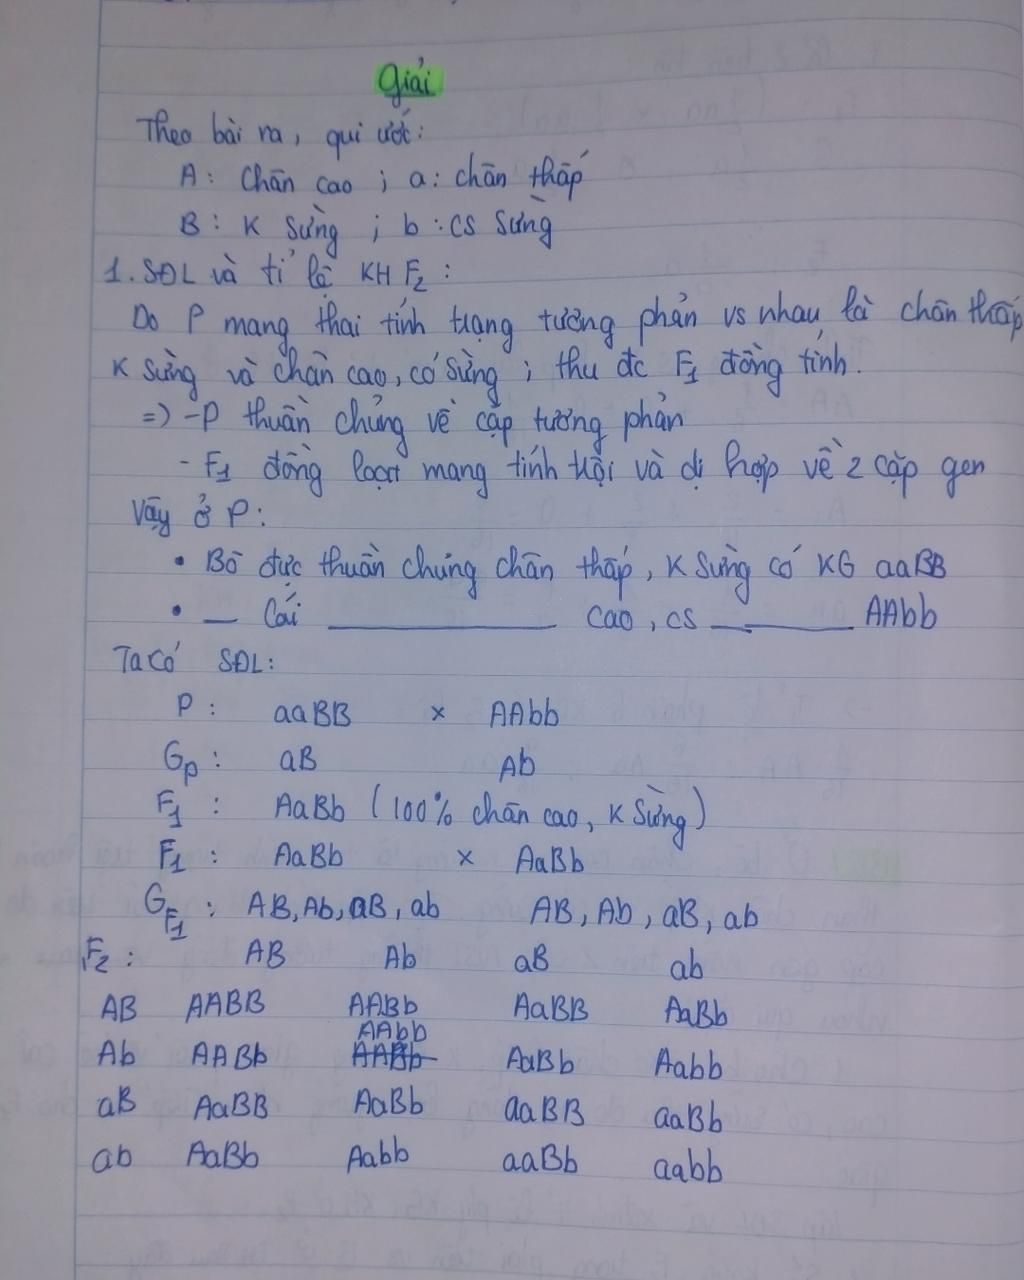 Giải
Theo bài ra, qui ước:
A: Chân cao ; a: chân thấp
B: K sừng ; b: cs sừng
1. SĐL và tỉ lệ KH F₂ :
Do P mang thai tính trạng tương phản vs nhau là chân thấp
K sừng và chân cao, có sừng ; thu đc F₁ đồng tính.
=) - P thuần chủng về cặp tương phản
- F₁ đồng loạt mang tính trội và dị hợp về 2 cặp gen
Vậy ở P:
• Bò đực thuần chủng chân thấp, K sừng có KG aaBB
• — Cái ——— cao, cs ——— AAbb
Ta có SĐL:
P : aaBB × AAbb
Gp : aB Ab
F₁ : AaBb (100% chân cao, K sừng)
F₁ : AaBb × AaBb
G F₁ : AB, Ab, aB, ab AB, Ab, aB, ab
F₂ : AB Ab aB ab
AB AABB AABb AaBB AaBb
AAbb
Ab AABb AABb AaBb Aabb
aB AaBB AaBb aaBB aaBb
ab AaBb Aabb aaBb aabb